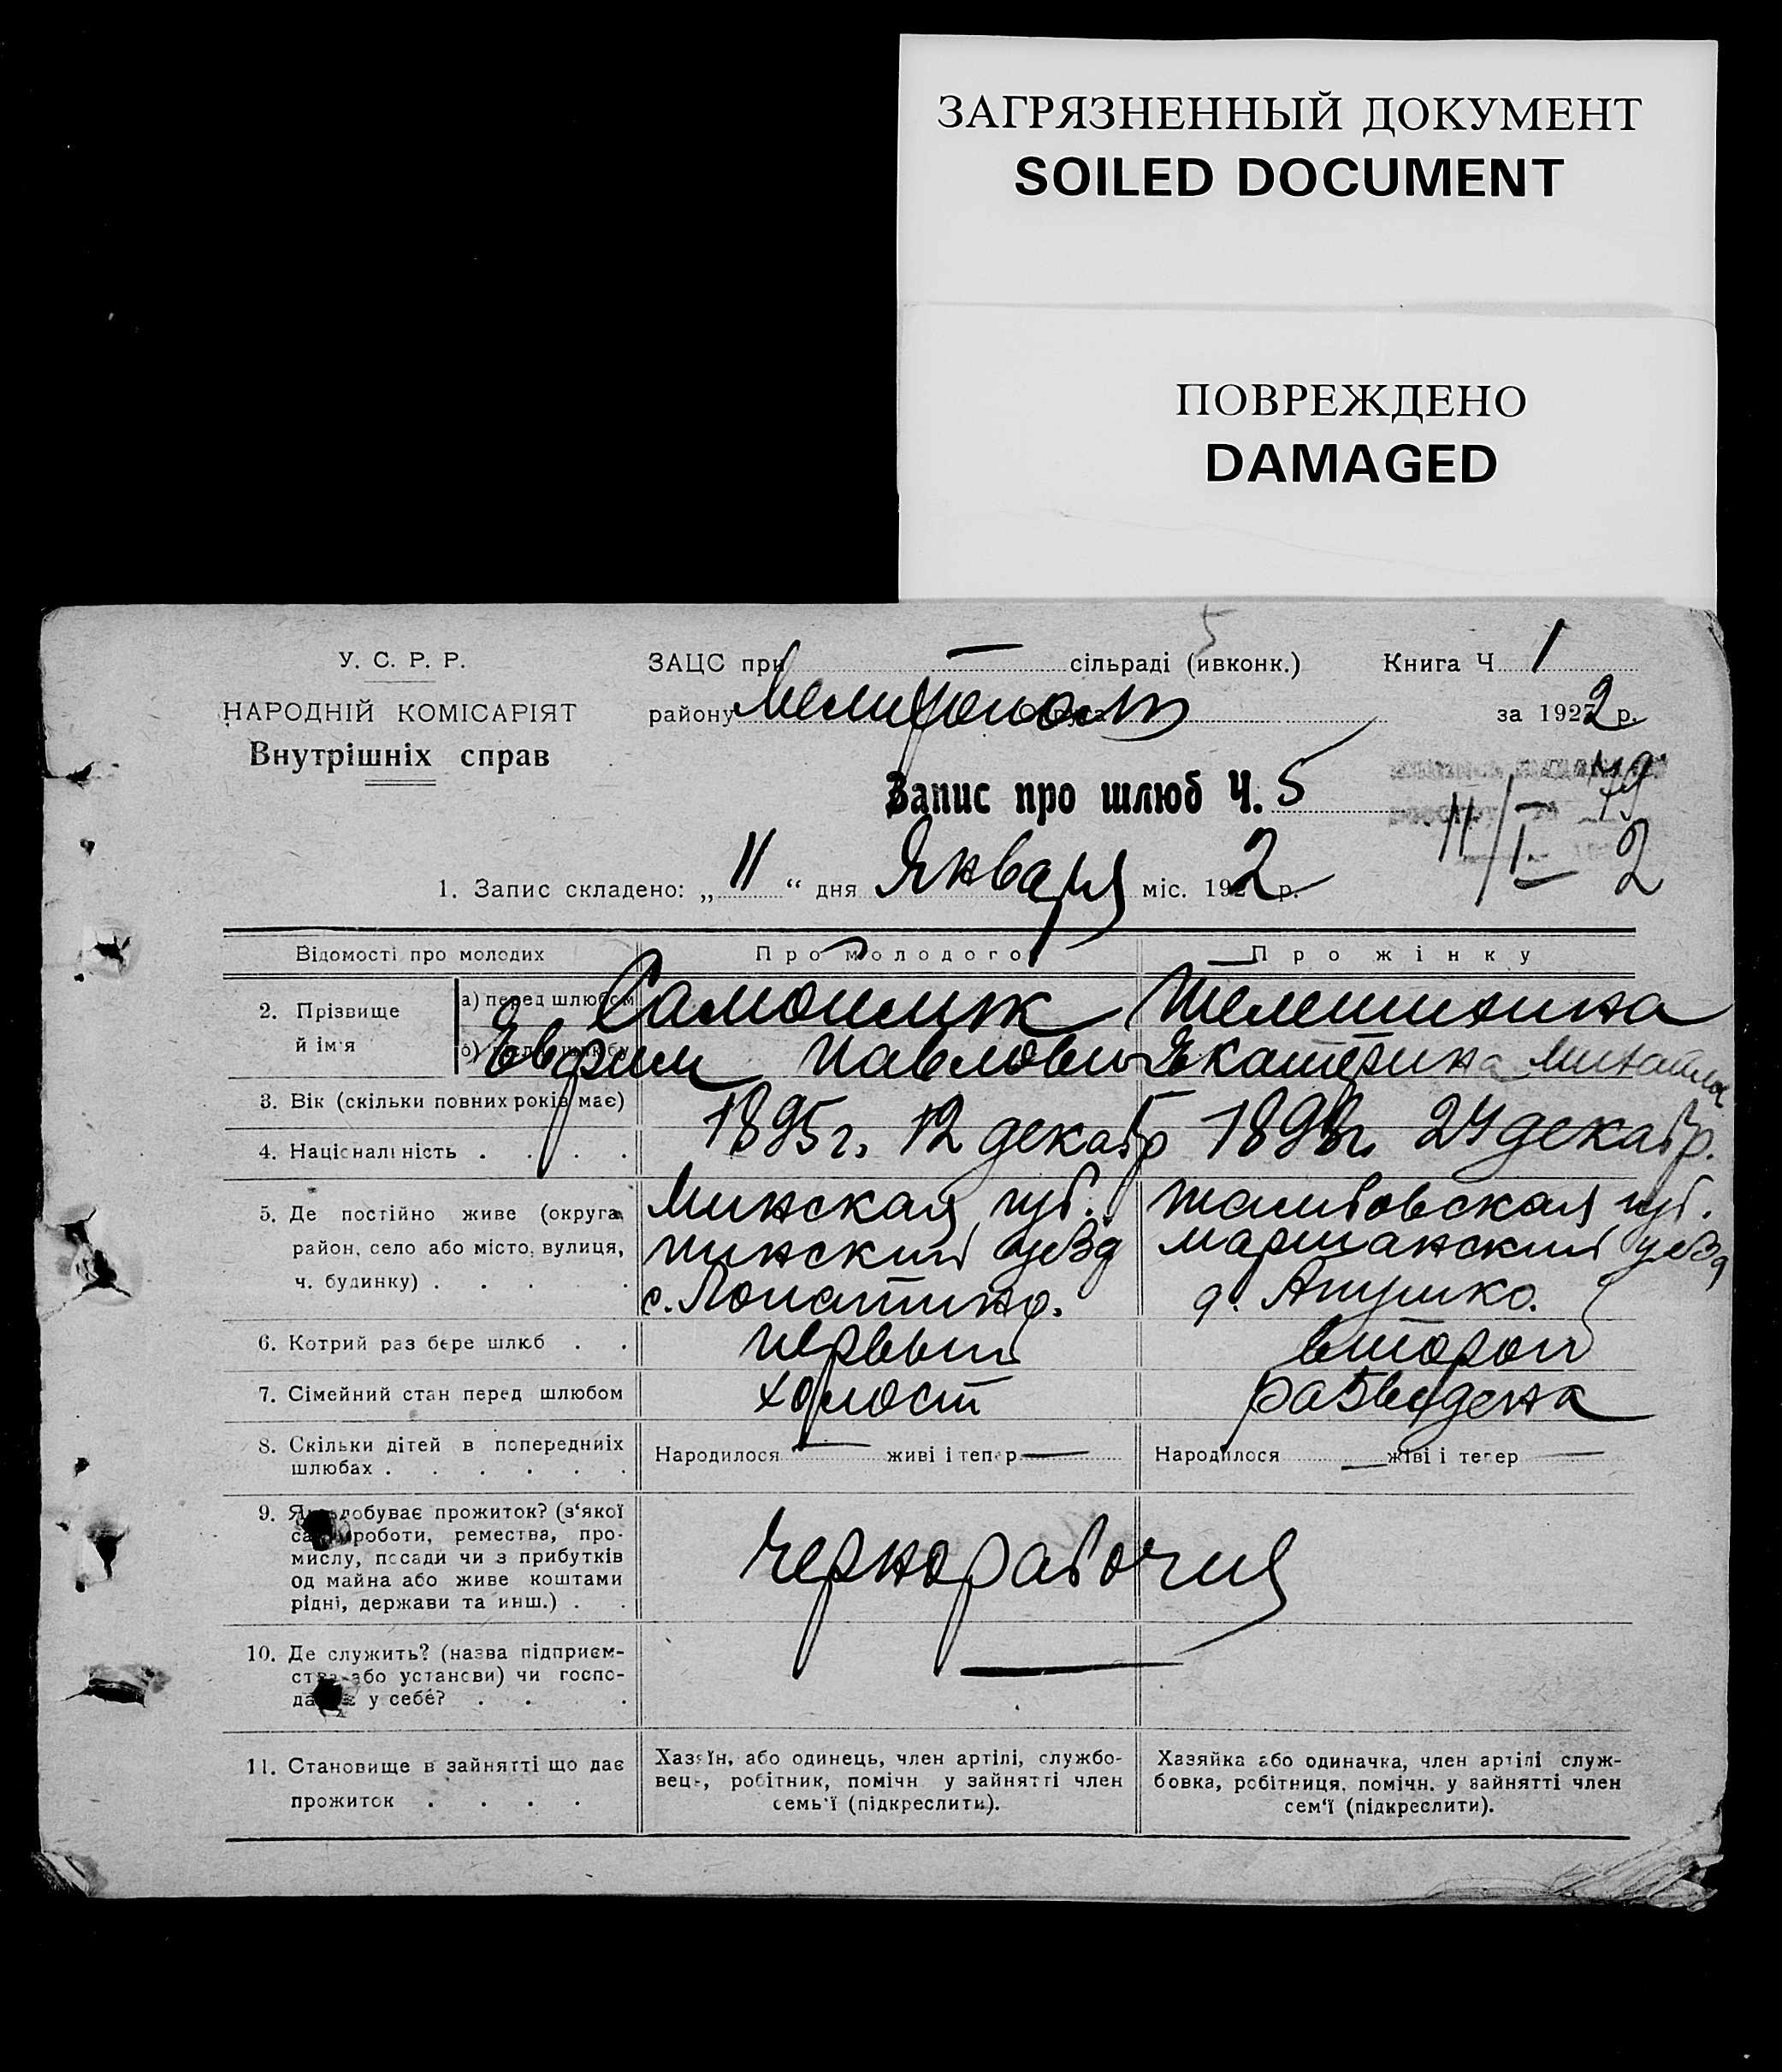 ЗАГРЯЗНЕННЫЙ ДОКУМЕНТ
SOILED DOCUMENT
ПОВРЕЖДЕНО
DAMAGED
5
У. С. Р. Р.
НАРОДНІЙ КОМІСАРІЯТ
Внутрішніх справ
ЗАЦС при — сільраді (ивконк.) Книга Ч. 1
району Мелитополь за 1922 р.
Запис про шлюб Ч. 5
11/I 2
1. Запис складено: „11“ дня Января міс. 1922 р.
Відомості про молодих Про молодого Про жінку
2. Прізвище й ім'я а) перед шлюбом Самоилик
Ефрим Павлови Екатерина Михайлов
3. Вік (скільки повних років має) 1895 г. 12 декабр 1898 г. 24 декабр.
4. Національність . . . .
5. Де постійно живе (округа, Минская губ. Тамбовская губ.
район, село або місто, вулиця, Пинский уезд Моршанский уезд
ч. будинку) . . . . с. Лопатино. д. Апушко.
6. Котрий раз бере шлюб . . первый второй
7. Сімейний стан перед шлюбом холост разведена
8. Скільки дітей в попередніх Народилося — живі і тепер — Народилося — живі і тепер —
шлюбах . . . . . .
9. Як добуває прожиток? (з'якої
саме роботи, ремества, про-
мислу, посади чи з прибутків
од майна або живе коштами
рідні, держави та инш.) . .
Чернорабочий
10. Де служить? (назва підприєм-
ства або установи) чи госпо-
дарює у себе? . . . —
11. Становище в зайнятті що дає
прожиток . . . .
Хазяїн, або одинець, член артілі, службо-
вець, робітник, помічн. у зайнятті член
семь'ї (підкреслити).
Хазяйка або одиначка, член артілі служ-
бовка, робітниця, помічн. у зайнятті член
сем'ї (підкреслити).